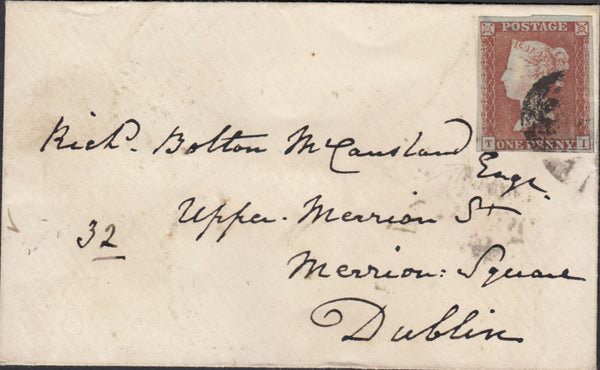 POSTAGE
T ONE PENNY I
Richd. Bolton McCausland
Esqr.
Upper. Merrion St
32
Merrion: Square
Dublin